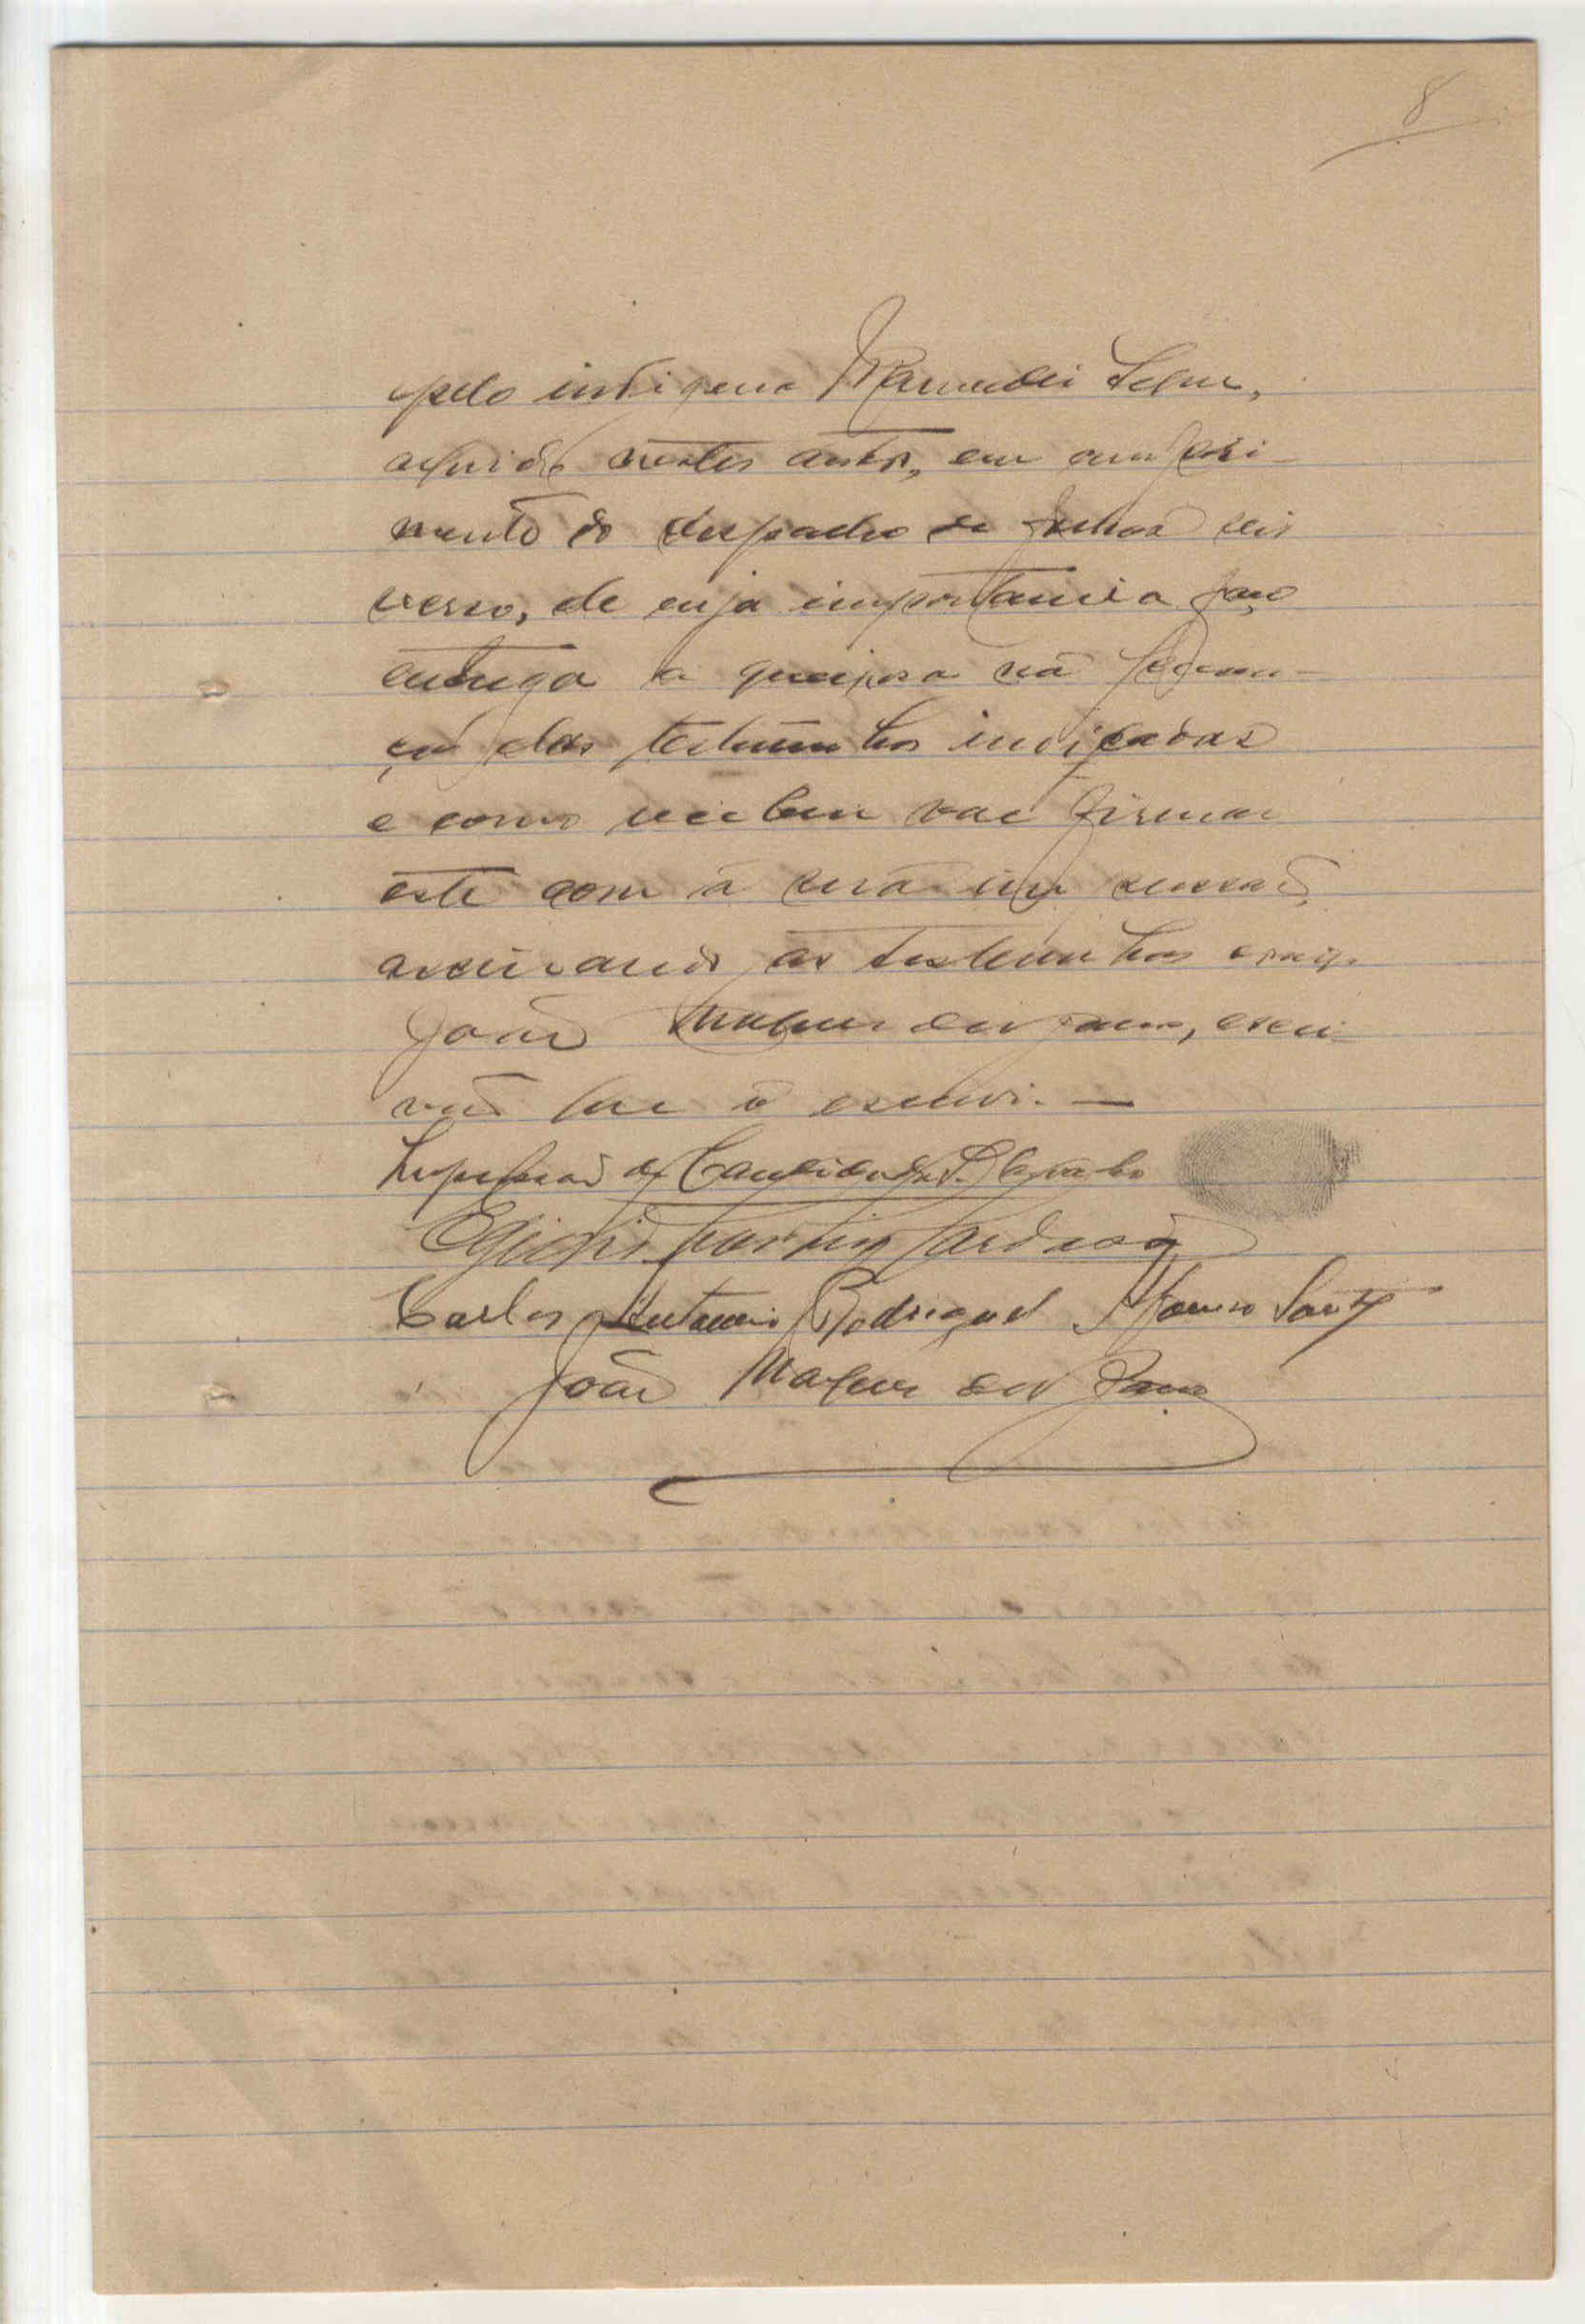 8
pelo indigena Mamadú
arguido nestes autos, em cumpri-
mento do despacho de folhas seis
verso, de cuja importancia faço
entrega á queixosa na presen-
ça das testemunhas indicadas
e como recebeu vae firmar
este com a sua impressão,
assinando as testemunhas e mais
João das, escri-
vão que o escrevi. —
Impressão de Candida
Cardoso
Carlos Antonio Rodrigues Afonso Santos
João das